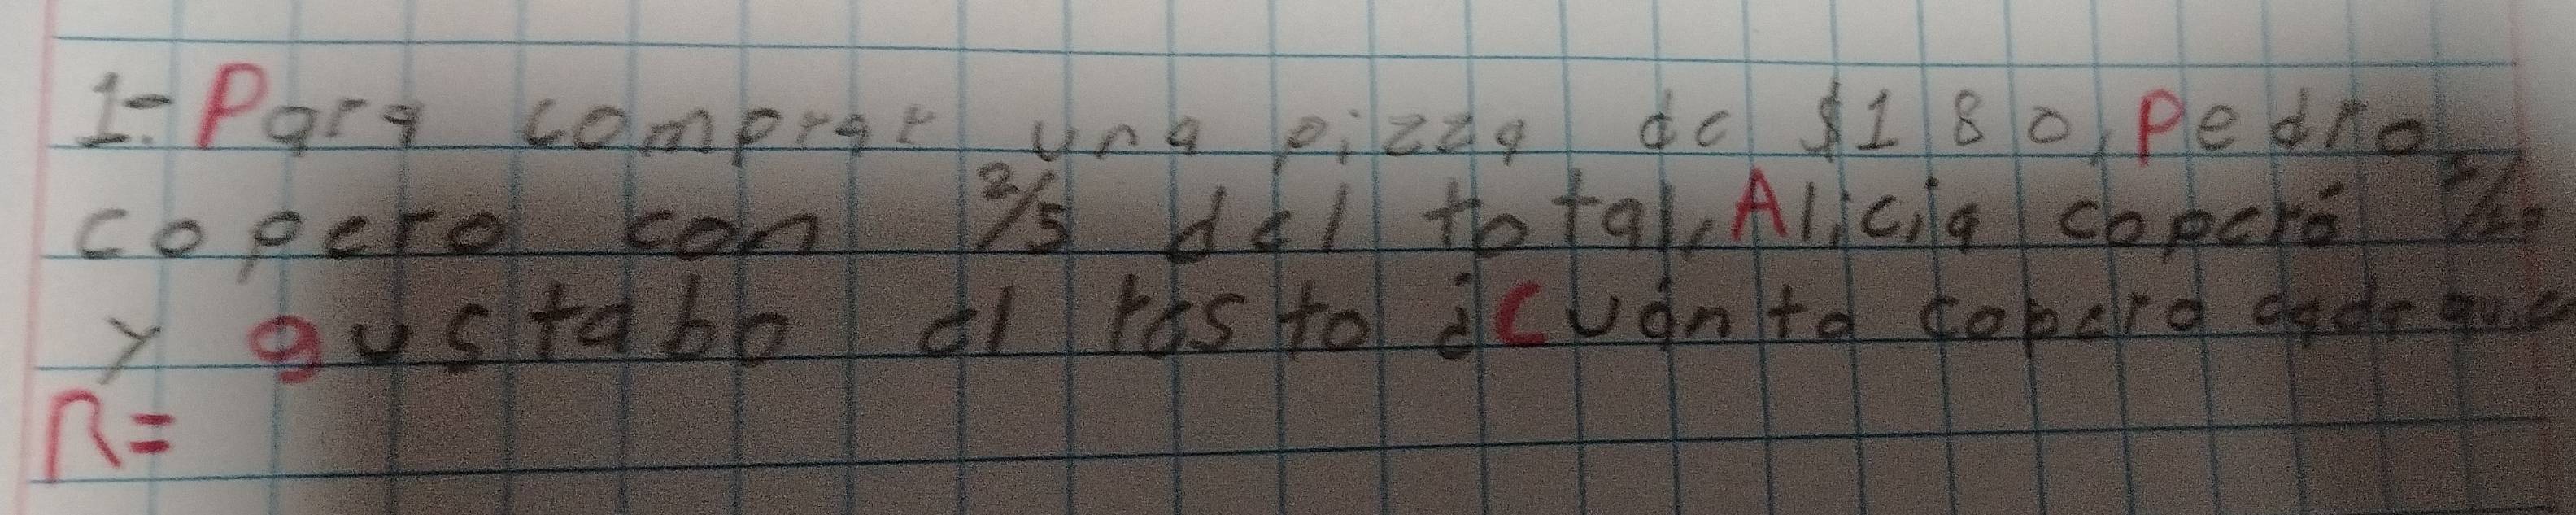 1.- Para comprar una pizza de $180, Pedro
copero con 2/5 del total, Alicia coperó
y gustabo el resto ¿Cuánto copero cada quien
R=